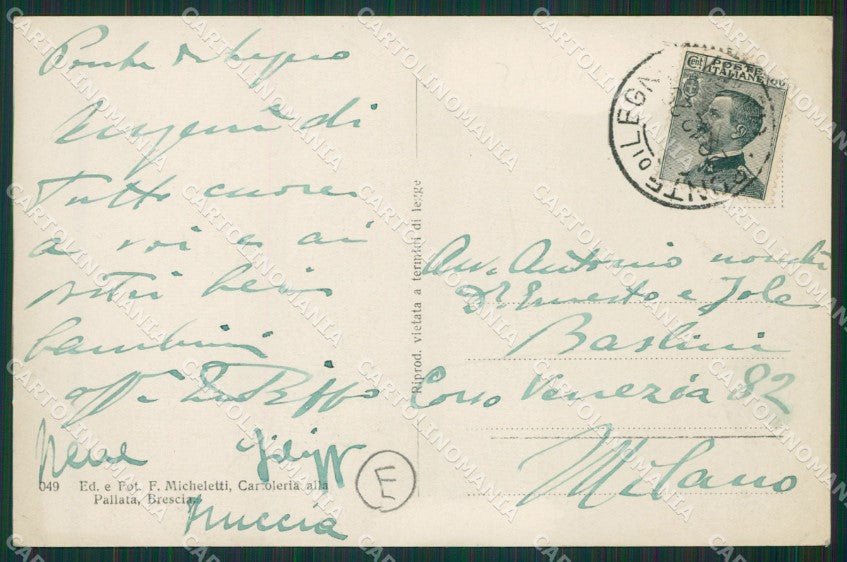 Ponte di Legno
Auguri di
tutto cuore
a voi e ai
vostri bei
bambini
Nuccia
049 Ed. e Fot. F. Micheletti, Cartoleria alla
Pallata, Brescia.
Riprod. vietata a termini di legge
PONTE DI LEGNO
Cent POSTE
ITALIANE
Avv. Antonio nonché
Dr Ernesto e Jole
Baslini
Corso Venezia 82
Milano
E
CARTOLINOMANIA